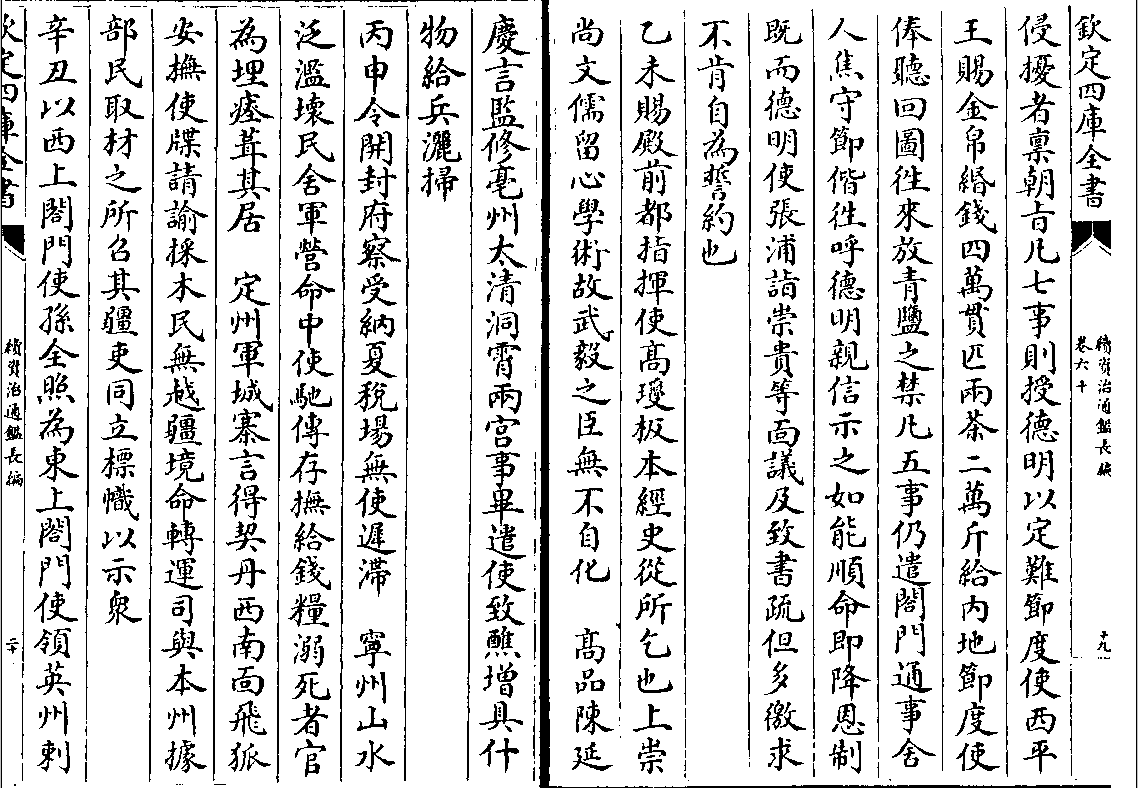 欽定四庫全書
續資治通鑑長編
卷六十
十九
侵擾者稟朝旨凡七事則授德明以定難節度使西平
王賜金帛緡錢四萬貫匹兩茶二萬斤給内地節度使
俸聽回圖徃來放青鹽之禁凡五事仍遣閤門通事舍
人焦守節偕徃呼德明親信示之如能順命即降恩制
既而德明使張浦詣崇貴等面議及致書疏但多徼求
不肯自為誓約也
乙未賜殿前都指揮使高瓊板本經史從所乞也上崇
尚文儒留心學術故武毅之臣無不自化　高品陳延
慶言監修亳州太清洞霄兩宫事畢遣使致醮增具什
物給兵灑掃
丙申令開封府察受納夏稅場無使遲滯　寧州山水
泛濫壞民舍軍營命中使馳傳存撫給錢糧溺死者官
為埋瘞葺其居　定州軍城寨言得契丹西南面飛狐
安撫使牒請諭採木民無越疆境命轉運司與本州據
部民取材之所召其疆吏同立標幟以示衆
辛丑以西上閤門使孫全照為東上閤門使領英州刺
欽定四庫全書
續資治通鑑長編
二十